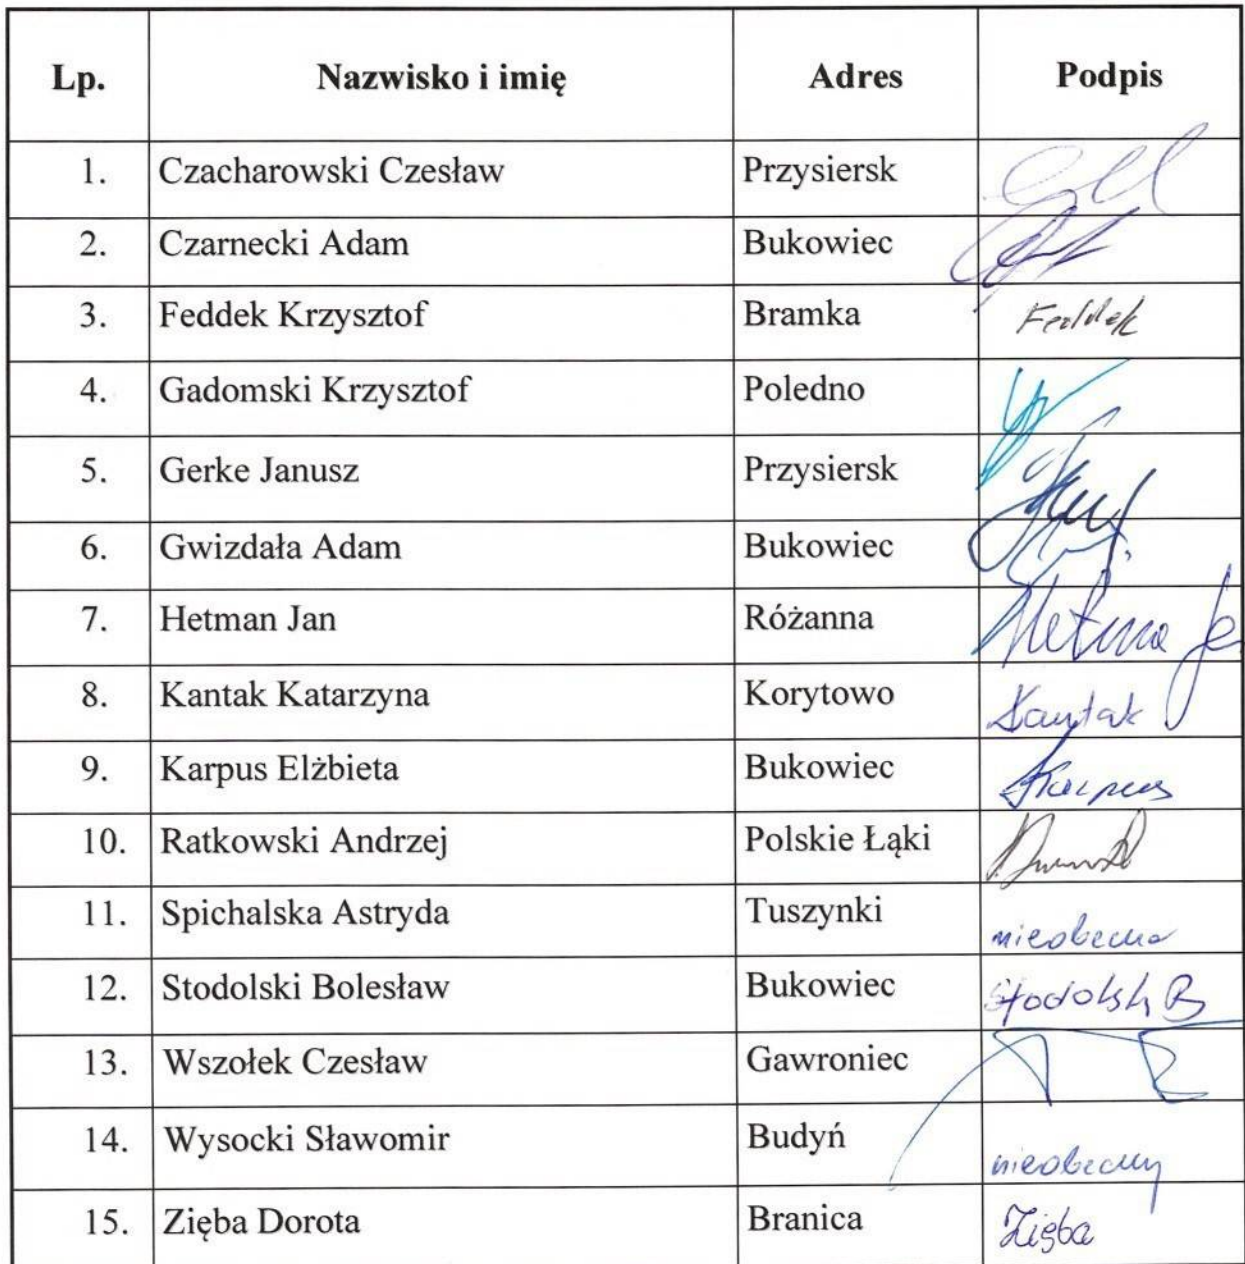 Lp. Nazwisko i imię Adres Podpis
1. Czacharowski Czesław Przysiersk
2. Czarnecki Adam Bukowiec
3. Feddek Krzysztof Bramka Feddek
4. Gadomski Krzysztof Poledno
5. Gerke Janusz Przysiersk
6. Gwizdała Adam Bukowiec
7. Hetman Jan Różanna Hetman
8. Kantak Katarzyna Korytowo Kantak
9. Karpus Elżbieta Bukowiec Karpus
10. Ratkowski Andrzej Polskie Łąki
11. Spichalska Astryda Tuszynki nieobecna
12. Stodolski Bolesław Bukowiec Stodolski B
13. Wszołek Czesław Gawroniec
14. Wysocki Sławomir Budyń nieobecny
15. Zięba Dorota Branica Zięba